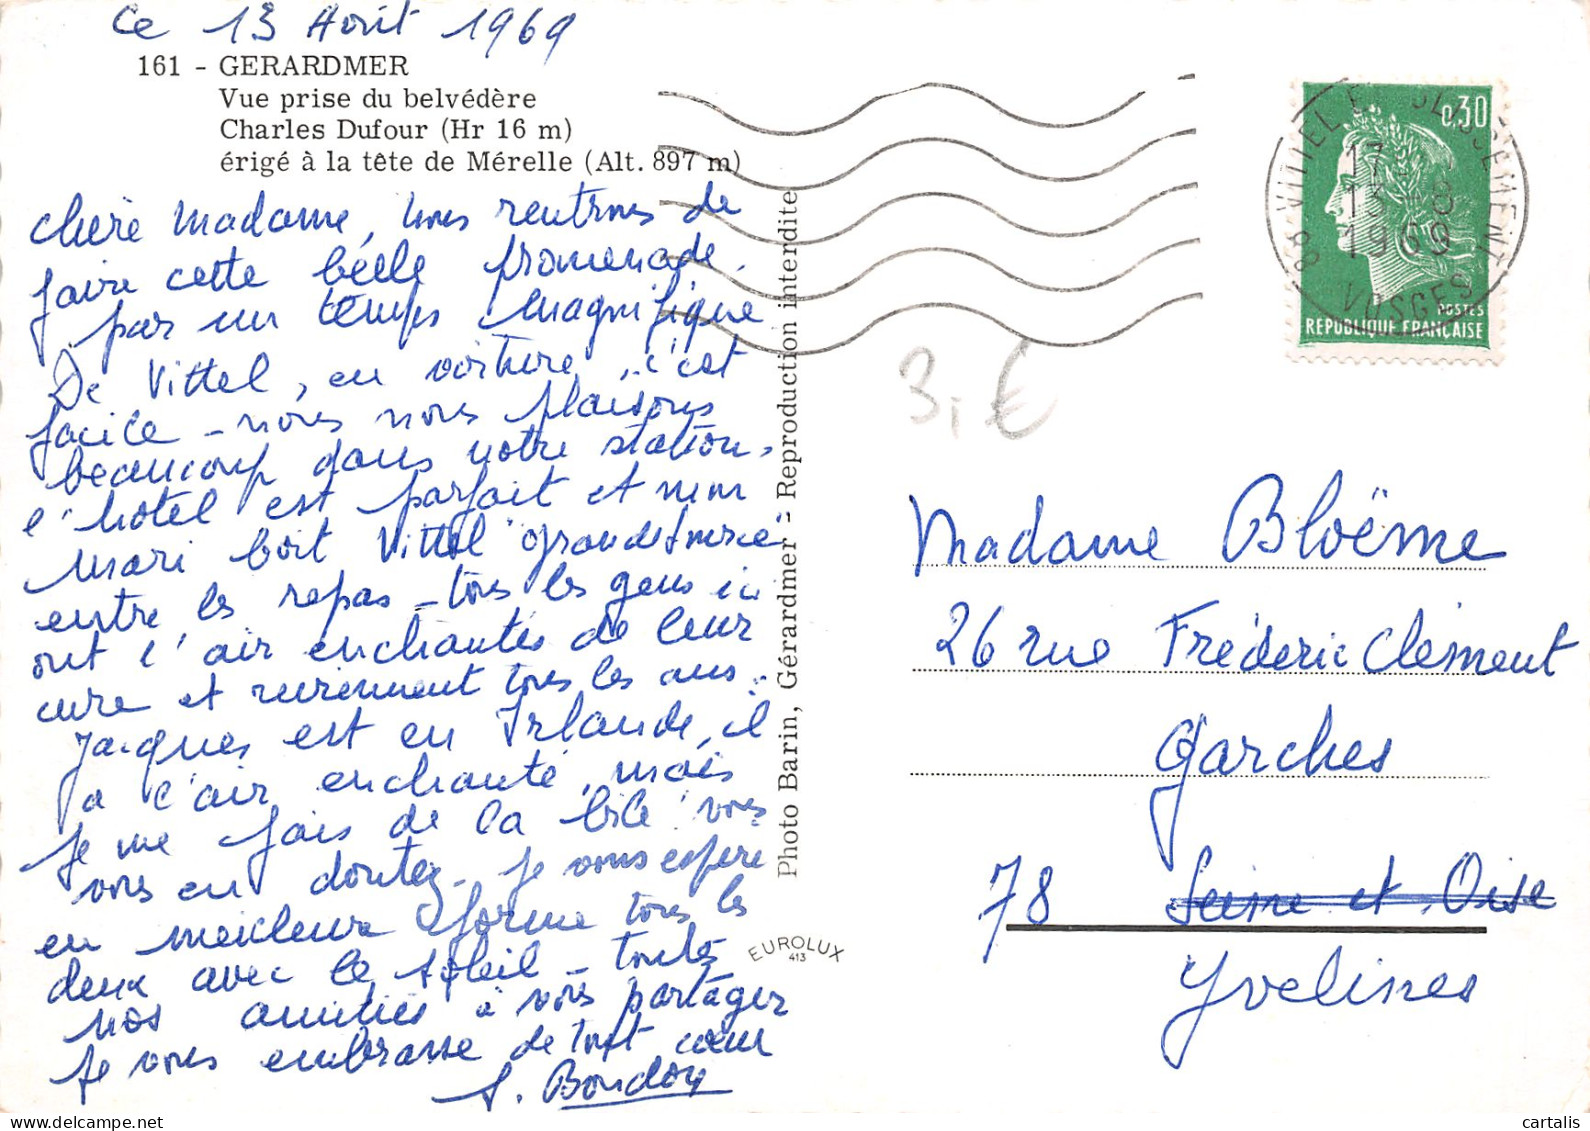 Ce 13 Août 1969
161 - GERARDMER
Vue prise du belvédère
Charles Dufour (Hr 16 m)
érigé à la tête de Mérelle (Alt. 897 m)
chère Madame, nous rentrons de
faire cette belle promenade.
par un temps magnifique
De Vittel, en voiture, c'est
facile - nous nous plaisons
beaucoup dans notre station.
l'hôtel est parfait et mon
mari boit Vittel "grande source"
entre les repas - tous les gens ici
ont l'air enchantés de leur
cure et reviennent tous les ans.
Jacques est en Irlande, il
a l'air enchanté, mais
je me fais de la bile vous
vous en doutez. Je vous espère
en meilleure forme tous les
deux avec le soleil - toutes
nos amitiés à vous partager
Je vous embrasse de tout cœur
S. Boudoy
Photo Barin, Gérardmer - Reproduction interdite
EUROLUX
413
88 VITTEL ETABLISSEMENT
VOSGES
17 H
13 - 8
1969
0,30
POSTES
REPUBLIQUE FRANÇAISE
3,€
Madame Bloëme
26 rue Fréderic Clément
Garches
78 Seine et Oise
Yvelines
cartalis